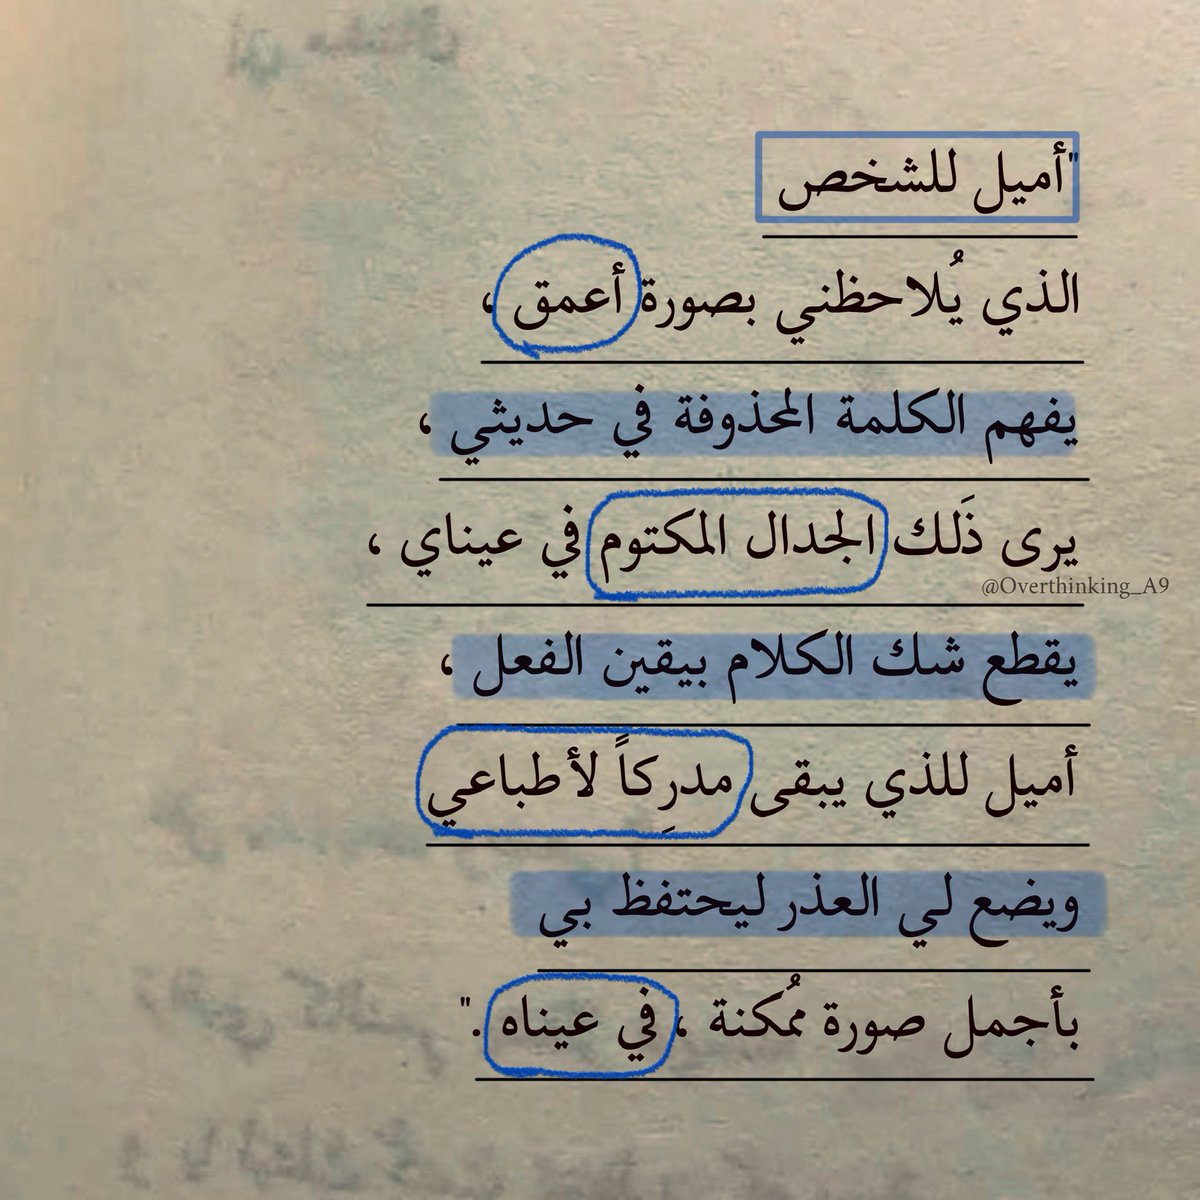 "أميل للشخص
الذي يُلاحظني بصورة أعمق ،
يفهم الكلمة المحذوفة في حديثي ،
يرى ذَلك الجدال المكتوم في عيناي ،
@Overthinking_A9
يقطع شك الكلام بيقين الفعل ،
أميل للذي يبقى مدرِكاً لأطباعي
ويضع لي العذر ليحتفظ بي
بأجمل صورة مُمكنة ، في عيناه ."